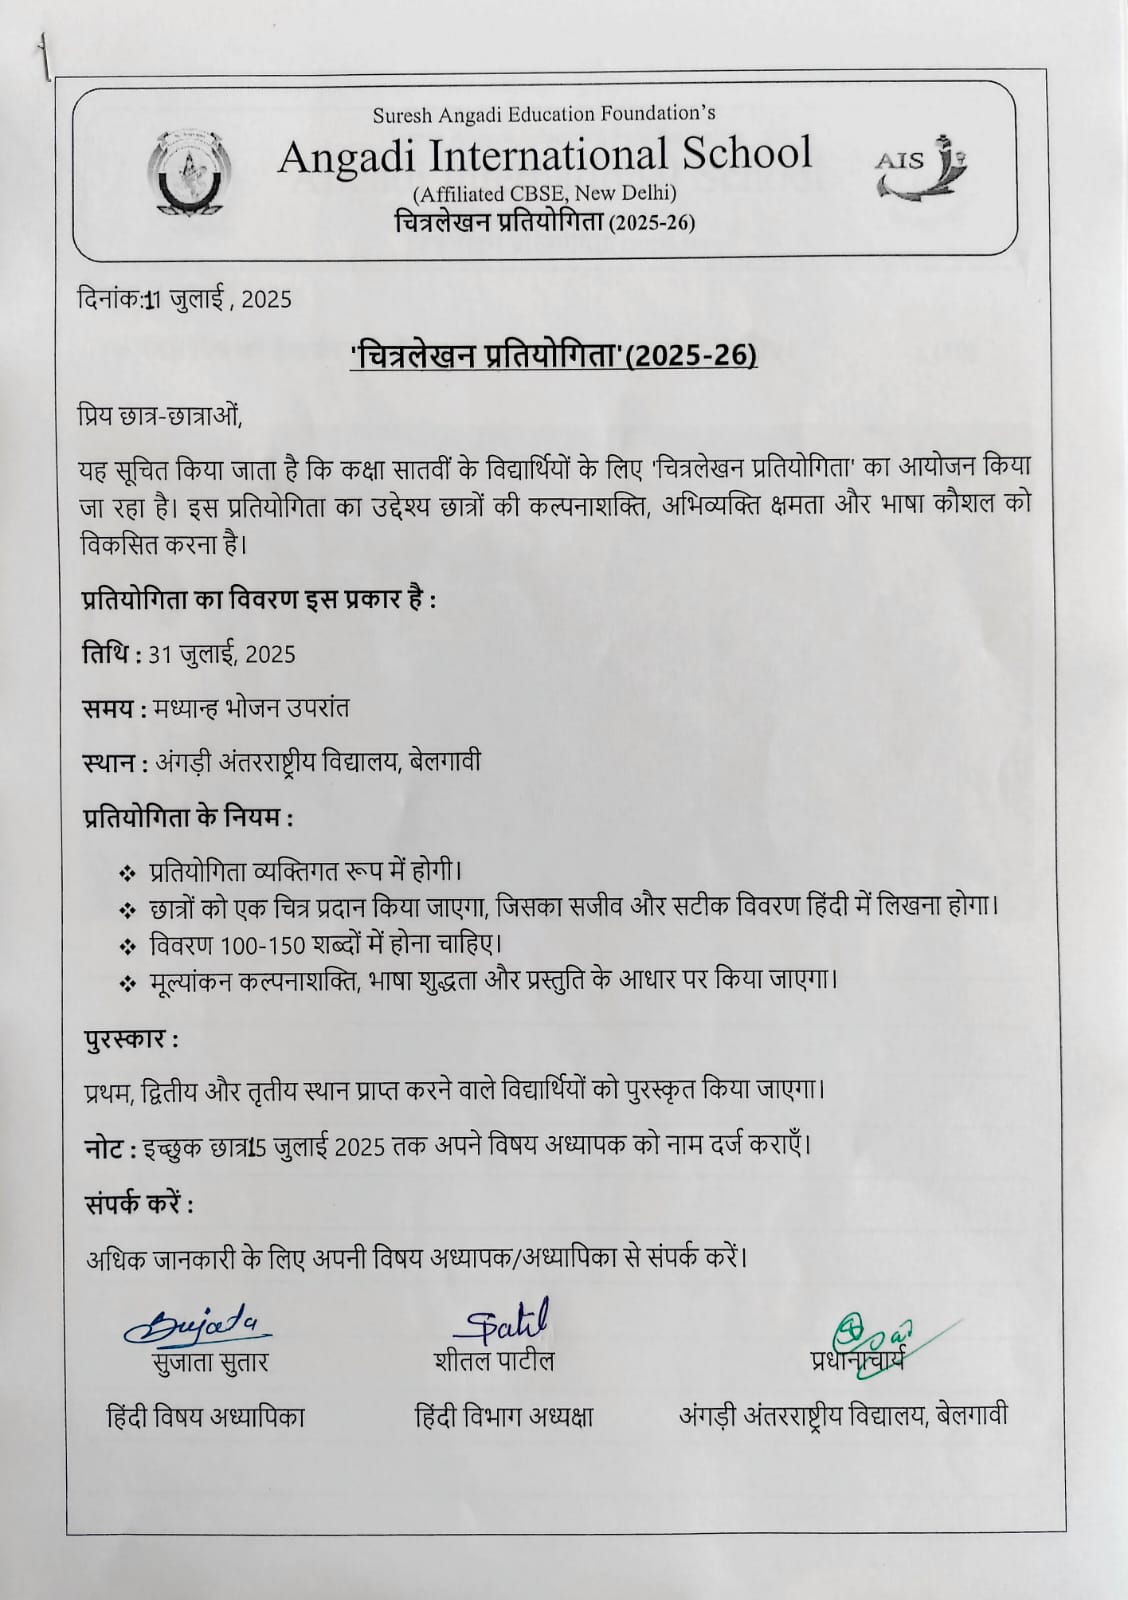 Suresh Angadi Education Foundation's
Angadi International School
(Affiliated CBSE, New Delhi)
चित्रलेखन प्रतियोगिता (2025-26)
AIS
दिनांक:11 जुलाई , 2025
'चित्रलेखन प्रतियोगिता'(2025-26)
प्रिय छात्र-छात्राओं,
यह सूचित किया जाता है कि कक्षा सातवीं के विद्यार्थियों के लिए 'चित्रलेखन प्रतियोगिता' का आयोजन किया
जा रहा है। इस प्रतियोगिता का उद्देश्य छात्रों की कल्पनाशक्ति, अभिव्यक्ति क्षमता और भाषा कौशल को
विकसित करना है।
प्रतियोगिता का विवरण इस प्रकार है :
तिथि : 31 जुलाई, 2025
समय : मध्यान्ह भोजन उपरांत
स्थान : अंगड़ी अंतरराष्ट्रीय विद्यालय, बेलगावी
प्रतियोगिता के नियम :
❖ प्रतियोगिता व्यक्तिगत रूप में होगी।
❖ छात्रों को एक चित्र प्रदान किया जाएगा, जिसका सजीव और सटीक विवरण हिंदी में लिखना होगा।
❖ विवरण 100-150 शब्दों में होना चाहिए।
❖ मूल्यांकन कल्पनाशक्ति, भाषा शुद्धता और प्रस्तुति के आधार पर किया जाएगा।
पुरस्कार :
प्रथम, द्वितीय और तृतीय स्थान प्राप्त करने वाले विद्यार्थियों को पुरस्कृत किया जाएगा।
नोट : इच्छुक छात्र15 जुलाई 2025 तक अपने विषय अध्यापक को नाम दर्ज कराएँ।
संपर्क करें :
अधिक जानकारी के लिए अपनी विषय अध्यापक/अध्यापिका से संपर्क करें।
Sujata Spatil
सुजाता सुतार शीतल पाटील प्रधानाचार्य
हिंदी विषय अध्यापिका हिंदी विभाग अध्यक्षा अंगड़ी अंतरराष्ट्रीय विद्यालय, बेलगावी